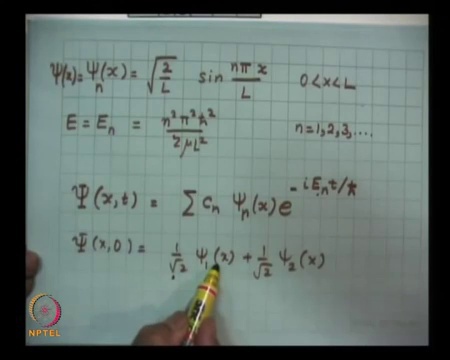 Ψ(x) = ψ_n(x) = √(2/L) sin nπx/L   0 < x < L
E = E_n = n²π²ħ²/2μL²   n = 1, 2, 3, ....
Ψ(x,t) = Σ c_n ψ_n(x) e^(-iE_n t/ħ)
Ψ(x,0) = 1/√2 ψ_1(x) + 1/√2 ψ_2(x)
NPTEL